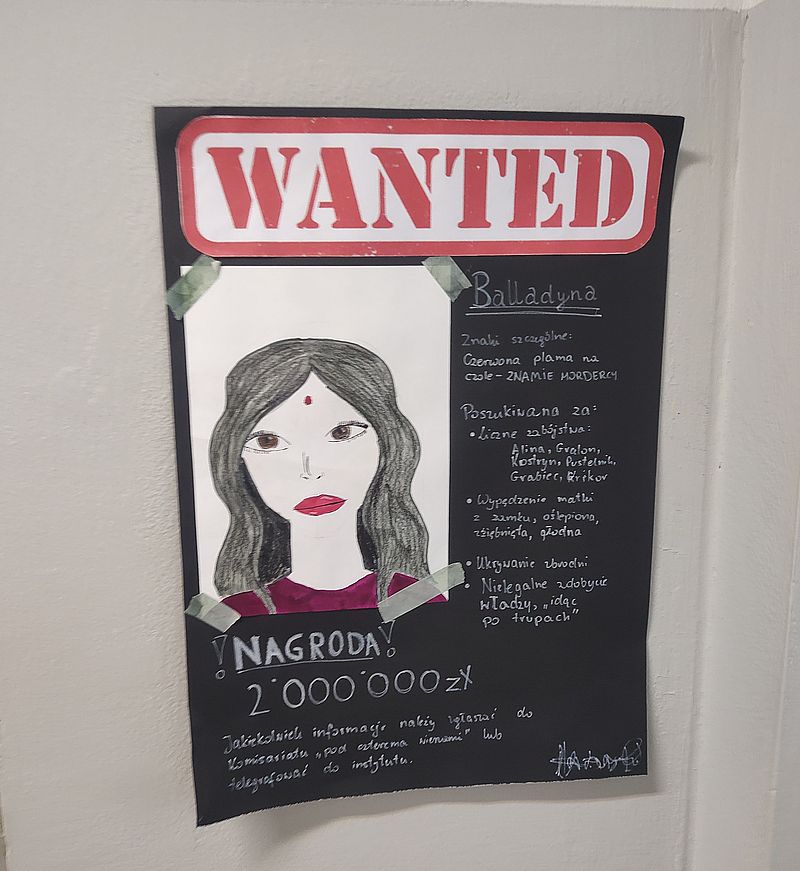 WANTED
Balladyna
Znaki szczególne:
Czerwona plama na
czole - ZNAMIE MORDERCY
Poszukiwana za:
• Liczne zabójstwa:
Alina, Gralon,
Kostryn, Pustelnik,
Grabiec, Krikov
• Wypędzenie matki
z zamku, oślepiona,
zziębnięta, głodna
• Ukrywanie zbrodni
• Nielegalne zdobycie
władzy, „idąc
po trupach"
! NAGRODA !
2'000'000 zł
Jakiekolwiek informacje należy zgłaszać do
Komisariatu „pod czterema" lub
telegrafować do instytutu.